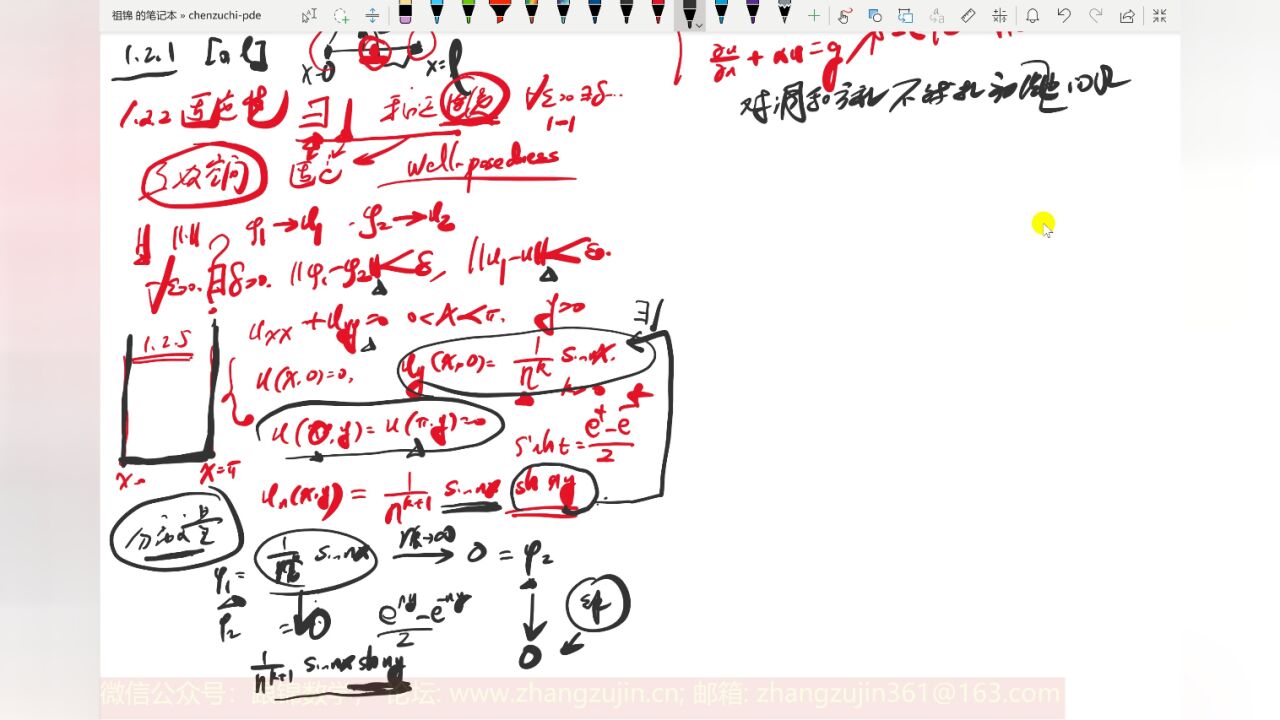 祖锦 的笔记本 » chenzuchi-pde
1.2.1 [0 l] x=0 x=l
1.2.2 适定性 ∃| 稳定 ∀ε>0 ∃δ...
1-1
适定 Well-posedness
‖·‖ φ₁→u₁ · φ₂→u₂
∀ε>0. ∃δ>0. ‖φ₁-φ₂‖<δ, ‖u₁-u₂‖<ε.
u_xx + u_yy = 0 0<x<π. y>0
∃|
1.2.5
u(x,0)=0, u_y(x,0)= 1/n^k sin nx.
k>0
u(0,y)=u(π,y)=0
sinh t = (e^t - e^-t)/2
x=0 x=π
u_n(x,y) = 1/n^(k+1) sin nx sh ny
分离变量
φ₁= 1/n^k sin nx n→∞ 0 = φ₂
φ₂ = 0 (e^ny - e^-ny)/2
0
1/n^(k+1) sin nx sh ny
∂u/∂n + αu = g
对调和方程 不转化初值问题
微信公众号: 跟锦数学; 论坛: www.zhangzujin.cn; 邮箱: zhangzujin361@163.com